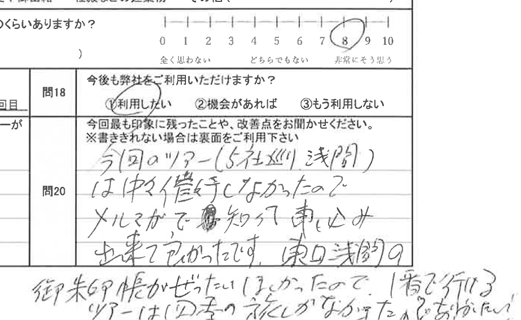 のくらいありますか？
0 1 2 3 4 5 6 7 8 9 10
全く思わない どちらでもない 非常にそう思う
)
問18 今後も弊社をご利用いただけますか？
回目 ①利用したい ②機会があれば ③もう利用しない
ーが 今回最も印象に残ったことや、改善点をお聞かせください。
※書ききれない場合は裏面をご利用下さい
問20
今回のツアー(5社巡り浅間)
は中々催行しなかったので
メルマガで知って申し込み
出来てよかったです。東口浅間の
御朱印帳がぜったいほしかったので、1番で行ける
ツアーは四季の旅しかなかったのでありがたい!